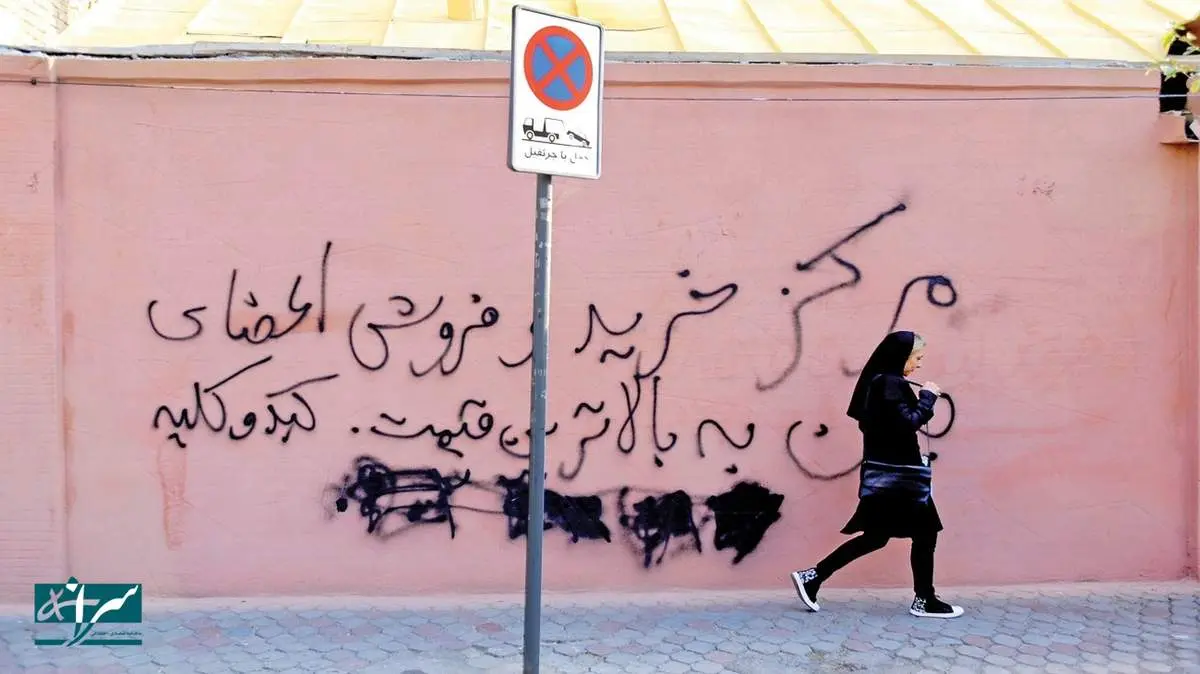 حمل با جرثقیل
مرکز خرید و فروش اعضای
به بالاترین قیمت. کبد و کلیه